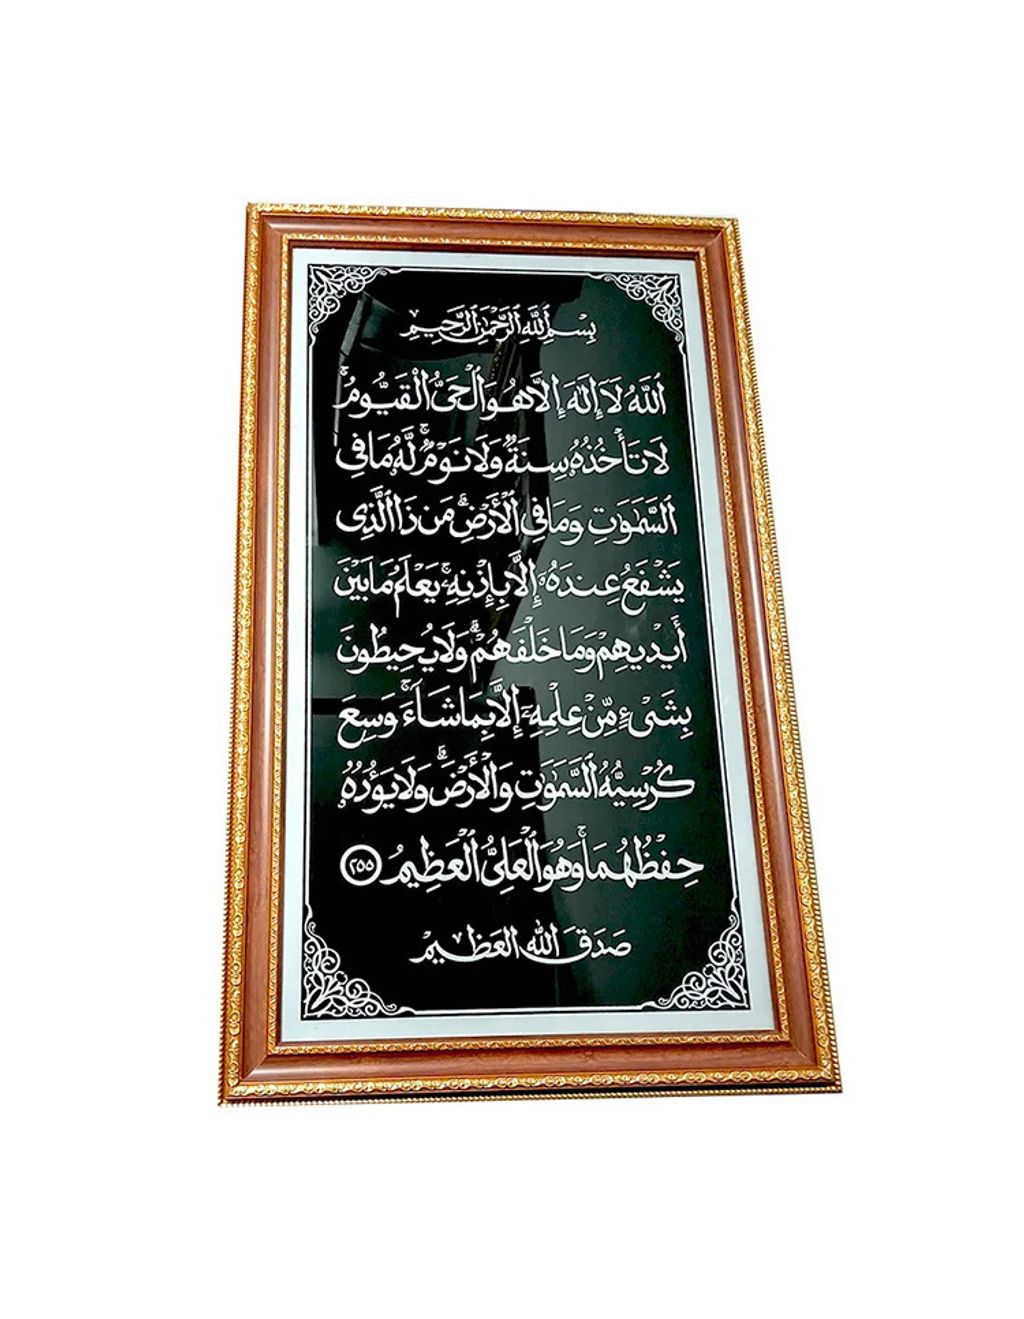 بِسْمِ ٱللَّهِ ٱلرَّحْمَٰنِ ٱلرَّحِيمِ
ٱللَّهُ لَآ إِلَٰهَ إِلَّا هُوَ ٱلْحَىُّ ٱلْقَيُّومُ ۚ
لَا تَأْخُذُهُۥ سِنَةٌ وَلَا نَوْمٌ ۚ لَّهُۥ مَا فِى
ٱلسَّمَٰوَٰتِ وَمَا فِى ٱلْأَرْضِ ۗ مَن ذَا ٱلَّذِى
يَشْفَعُ عِندَهُۥٓ إِلَّا بِإِذْنِهِۦ ۚ يَعْلَمُ مَا بَيْنَ
أَيْدِيهِمْ وَمَا خَلْفَهُمْ ۖ وَلَا يُحِيطُونَ
بِشَىْءٍ مِّنْ عِلْمِهِۦٓ إِلَّا بِمَا شَآءَ ۚ وَسِعَ
كُرْسِيُّهُ ٱلسَّمَٰوَٰتِ وَٱلْأَرْضَ ۖ وَلَا يَـُٔودُهُۥ
حِفْظُهُمَا ۚ وَهُوَ ٱلْعَلِىُّ ٱلْعَظِيمُ ٢٥٥
صَدَقَ اللّٰهُ العَظِيمْ